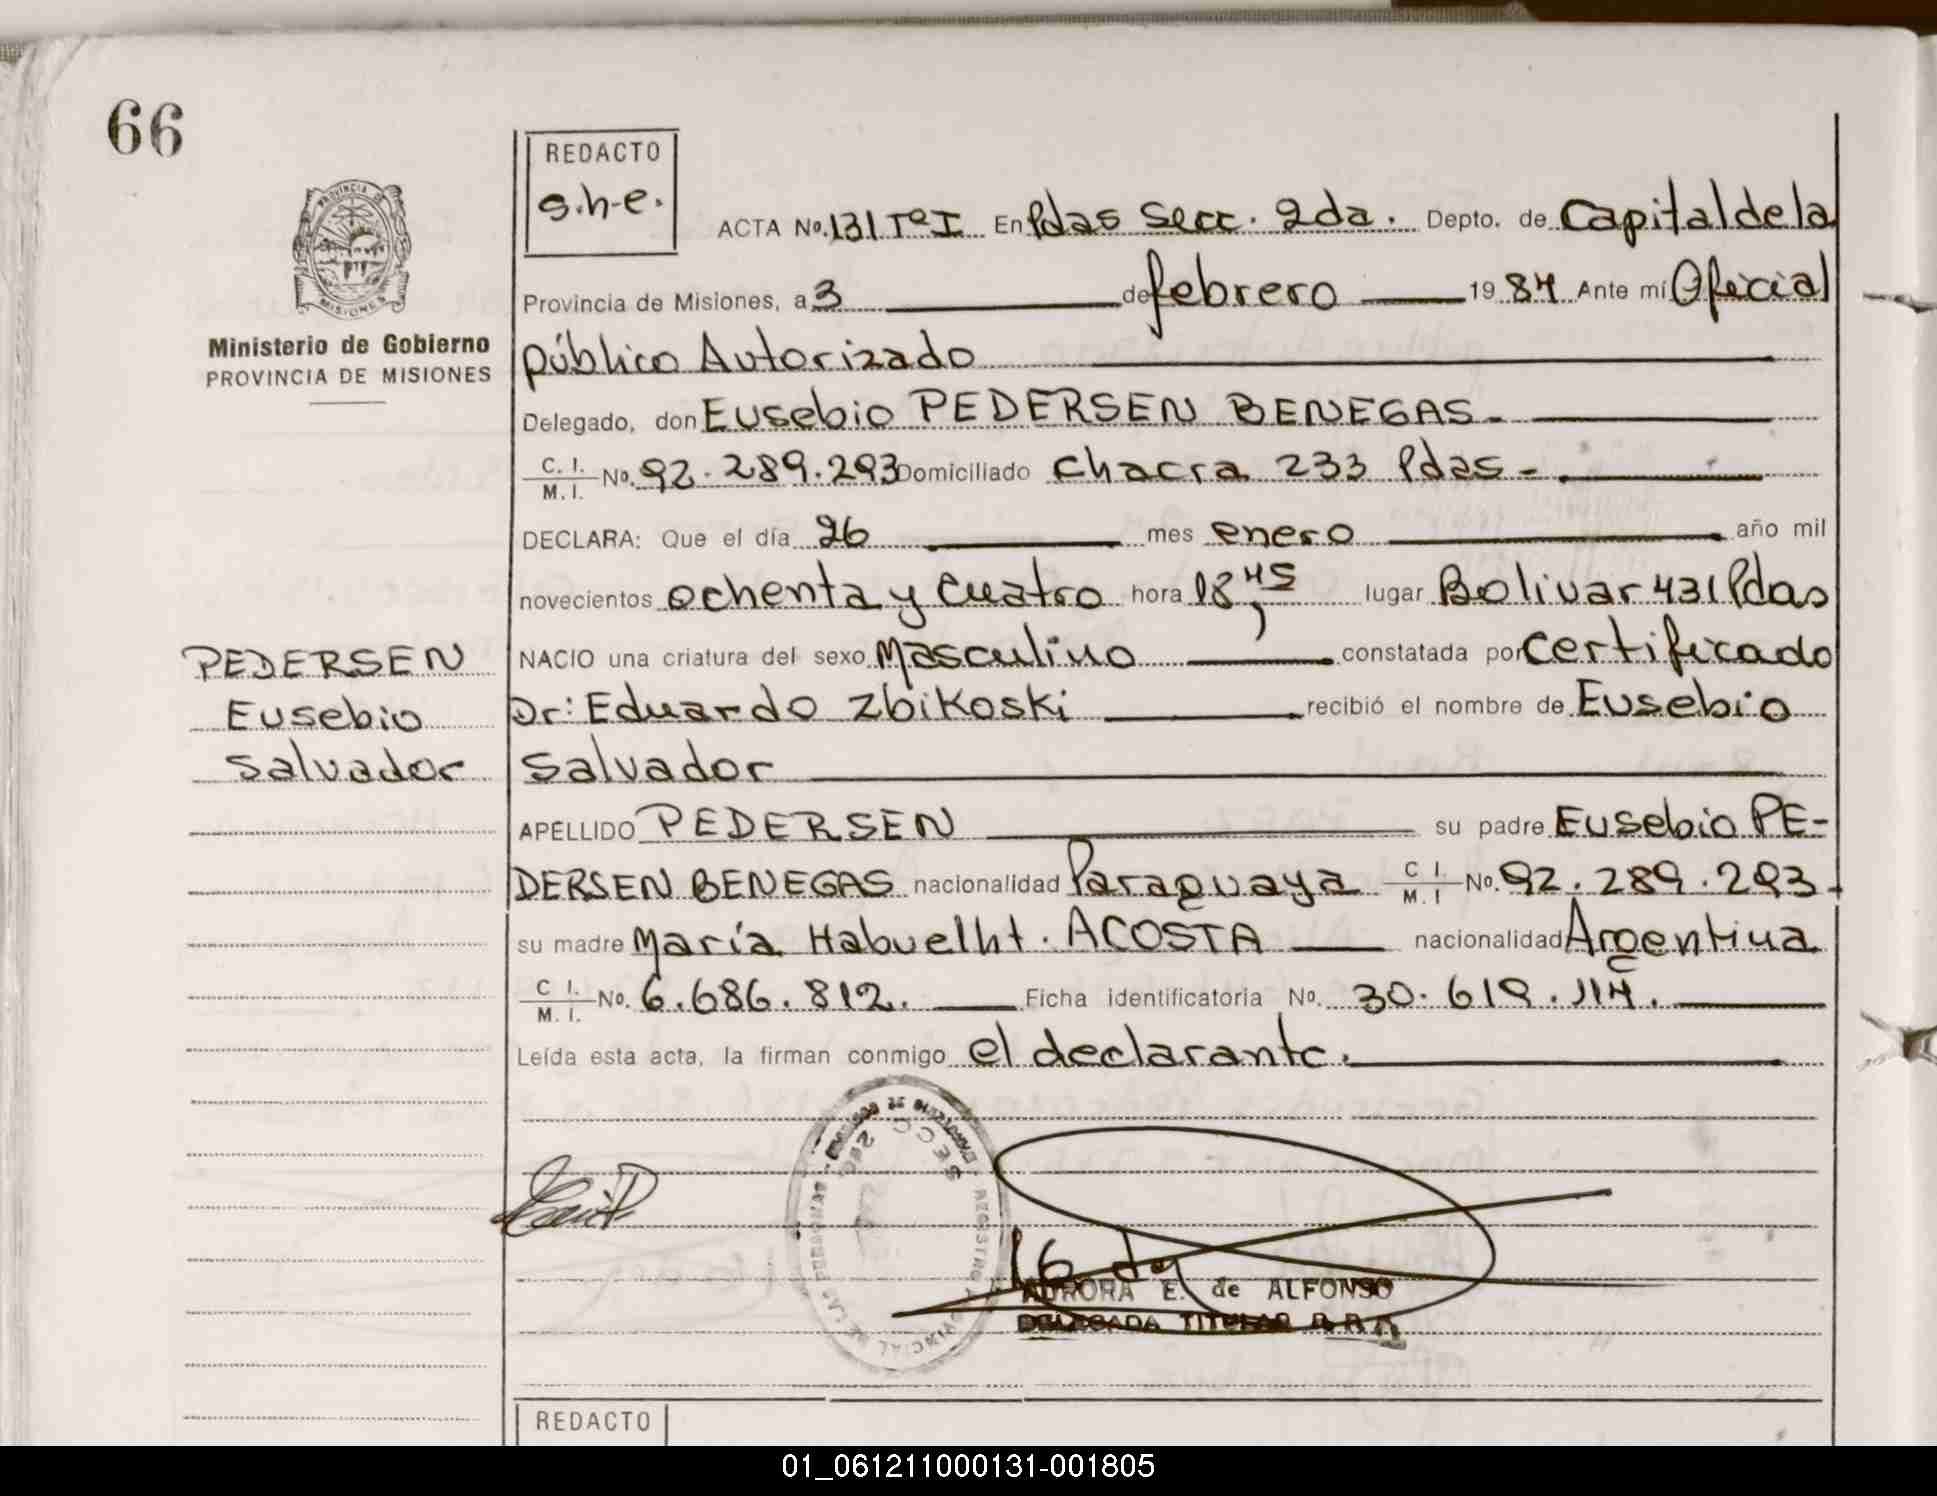 66
REDACTO
s.h-e.
PROVINCIA DE MISIONES
Ministerio de Gobierno
PROVINCIA DE MISIONES
ACTA No. 131 Tº I En Pdas Secc. 2da. Depto. de Capital de la
Provincia de Misiones, a 3 de febrero 19 84 Ante mí Oficial
público Autorizado
Delegado, don Eusebio PEDERSEN BENEGAS.
C. I. / M. I. No. 92.289.293 Domiciliado chacra 233 Pdas-
DECLARA: Que el día 26 mes enero año mil
novecientos ochenta y cuatro hora 18,45 lugar Bolivar 431 Pdas
NACIO una criatura del sexo Masculino constatada por Certificado
Dr: Eduardo Zbikoski recibió el nombre de Eusebio
Salvador
PEDERSEN
Eusebio
Salvador
APELLIDO PEDERSEN su padre Eusebio PE-
DERSEN BENEGAS nacionalidad Paraguaya C I. / M. I No. 92.289.293.
su madre María Habuelht. ACOSTA nacionalidad Argentina
C I. / M. I. No. 6.686.812. Ficha identificatoria No. 30.619.114.
Leída esta acta, la firman conmigo el declarante.
SECC 2da
AURORA E. de ALFONSO
DELEGADA TITULAR
REDACTO
01_061211000131-001805